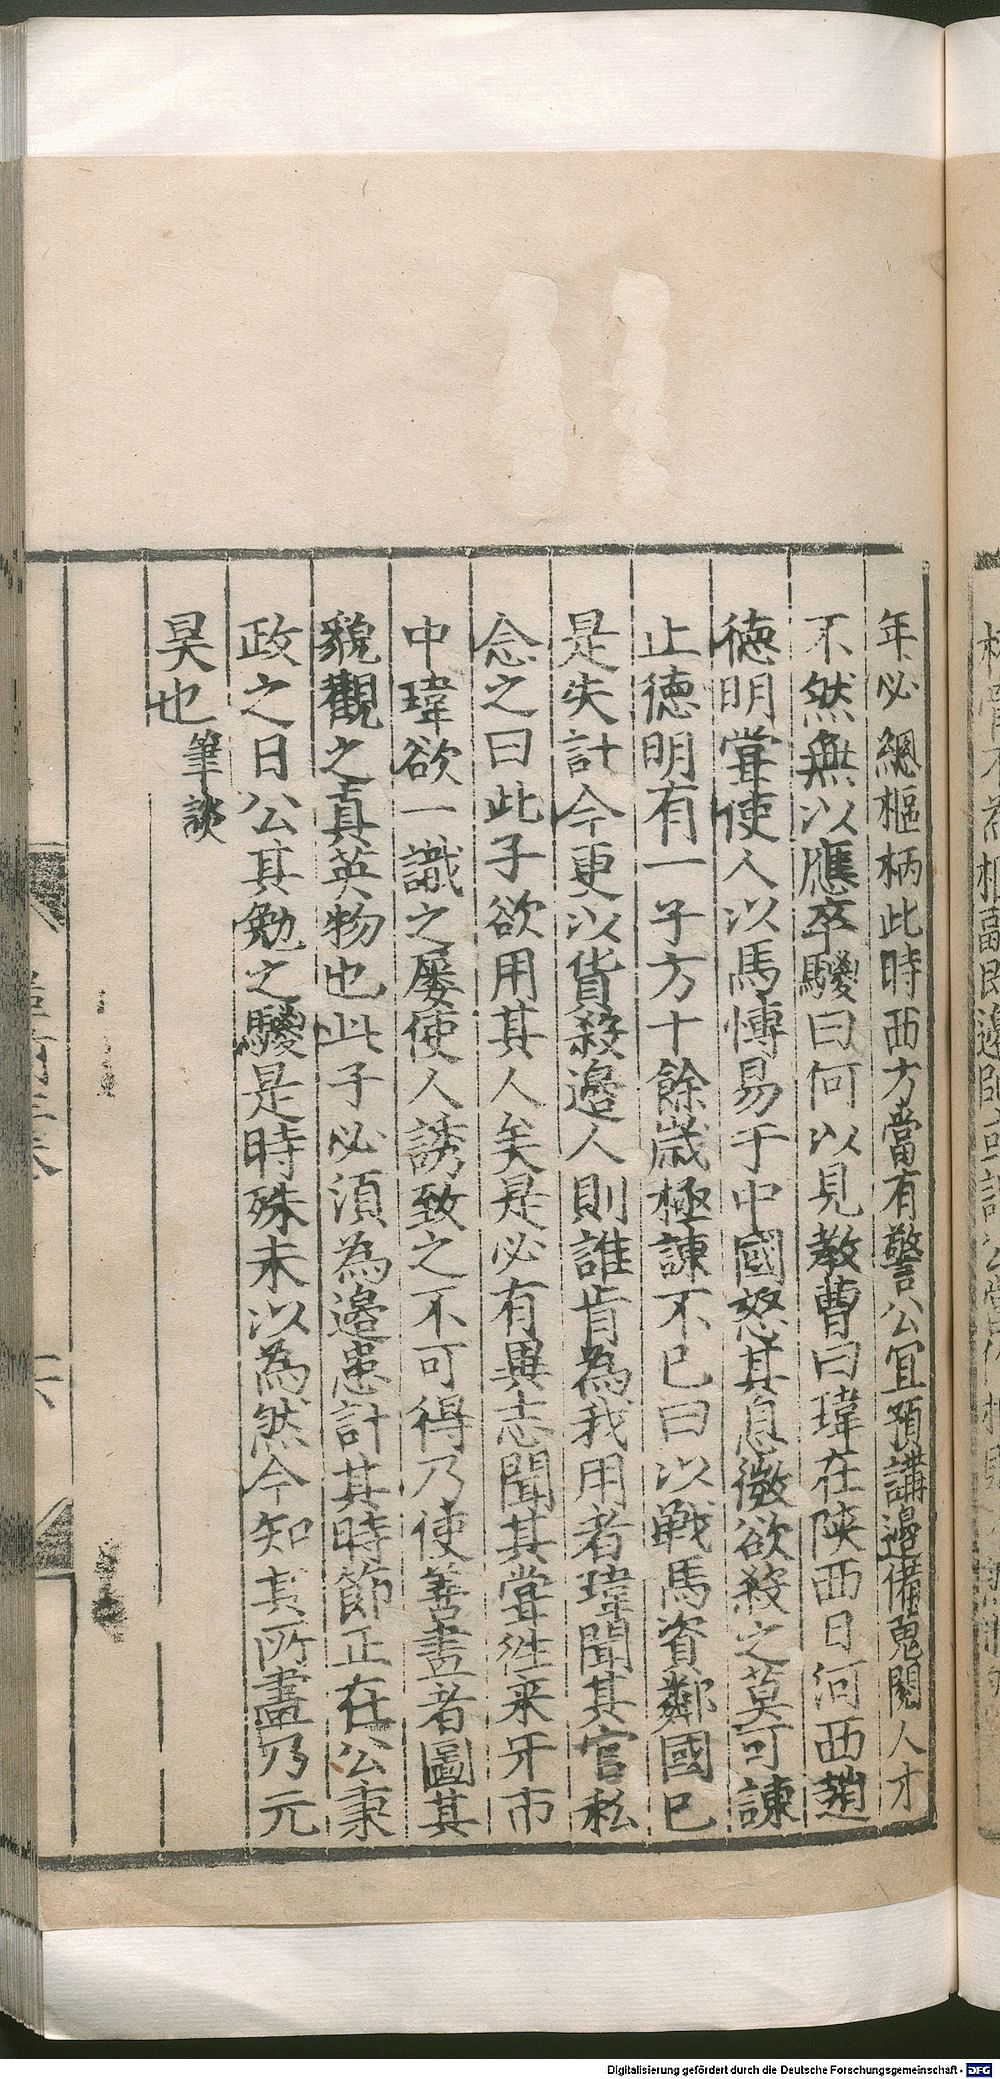 年必總樞柄此時西方當有警公宜預講邊備蒐閱人才
不然無以應卒騣曰何以見教曹曰瑋在陝西日河西趙
德明甞使人以馬愽易于中國怒其息微欲殺之莫可諫
止德明有一子方十餘歲極諫不已曰以戰馬資鄰國已
是失計今更以貨殺邉人則誰肯為我用者瑋聞其言私
念之曰此子欲用其人矣是必有異志聞其甞徃来牙市
中瑋欲一識之屢使人誘致之不可得乃使善畫者圖其
貌觀之真英物也此子必須為邉患計其時節正在公秉
政之日公其勉之騣是時殊未以為然今知其所畫乃元
昊也筆談
六
Digitalisierung gefördert durch die Deutsche Forschungsgemeinschaft - DFG